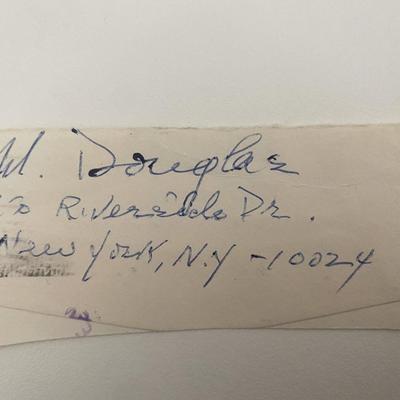 M. Douglas
Riverside Dr.
New York, N.Y -10024